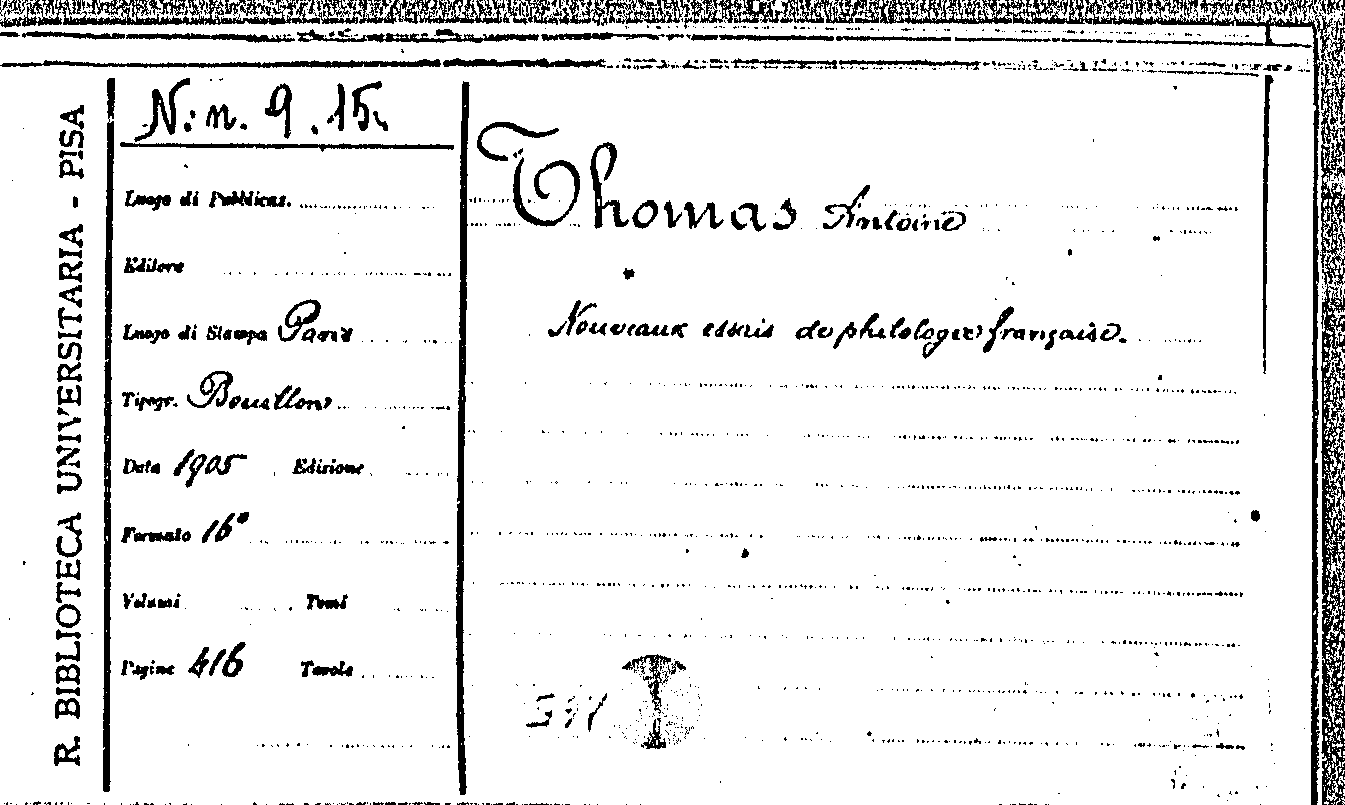 R. BIBLIOTECA UNIVERSITARIA - PISA
N. n. 9. 15.
Luogo di Pubblicaz.
Editore
Luogo di Stampa Paris
Tipogr. Bouillon
Data 1905 Edizione
Formato 16°
Volumi Tomi
Pagine 416 Tavole
Thomas Antoine
Nouveaux essais de philologie française.